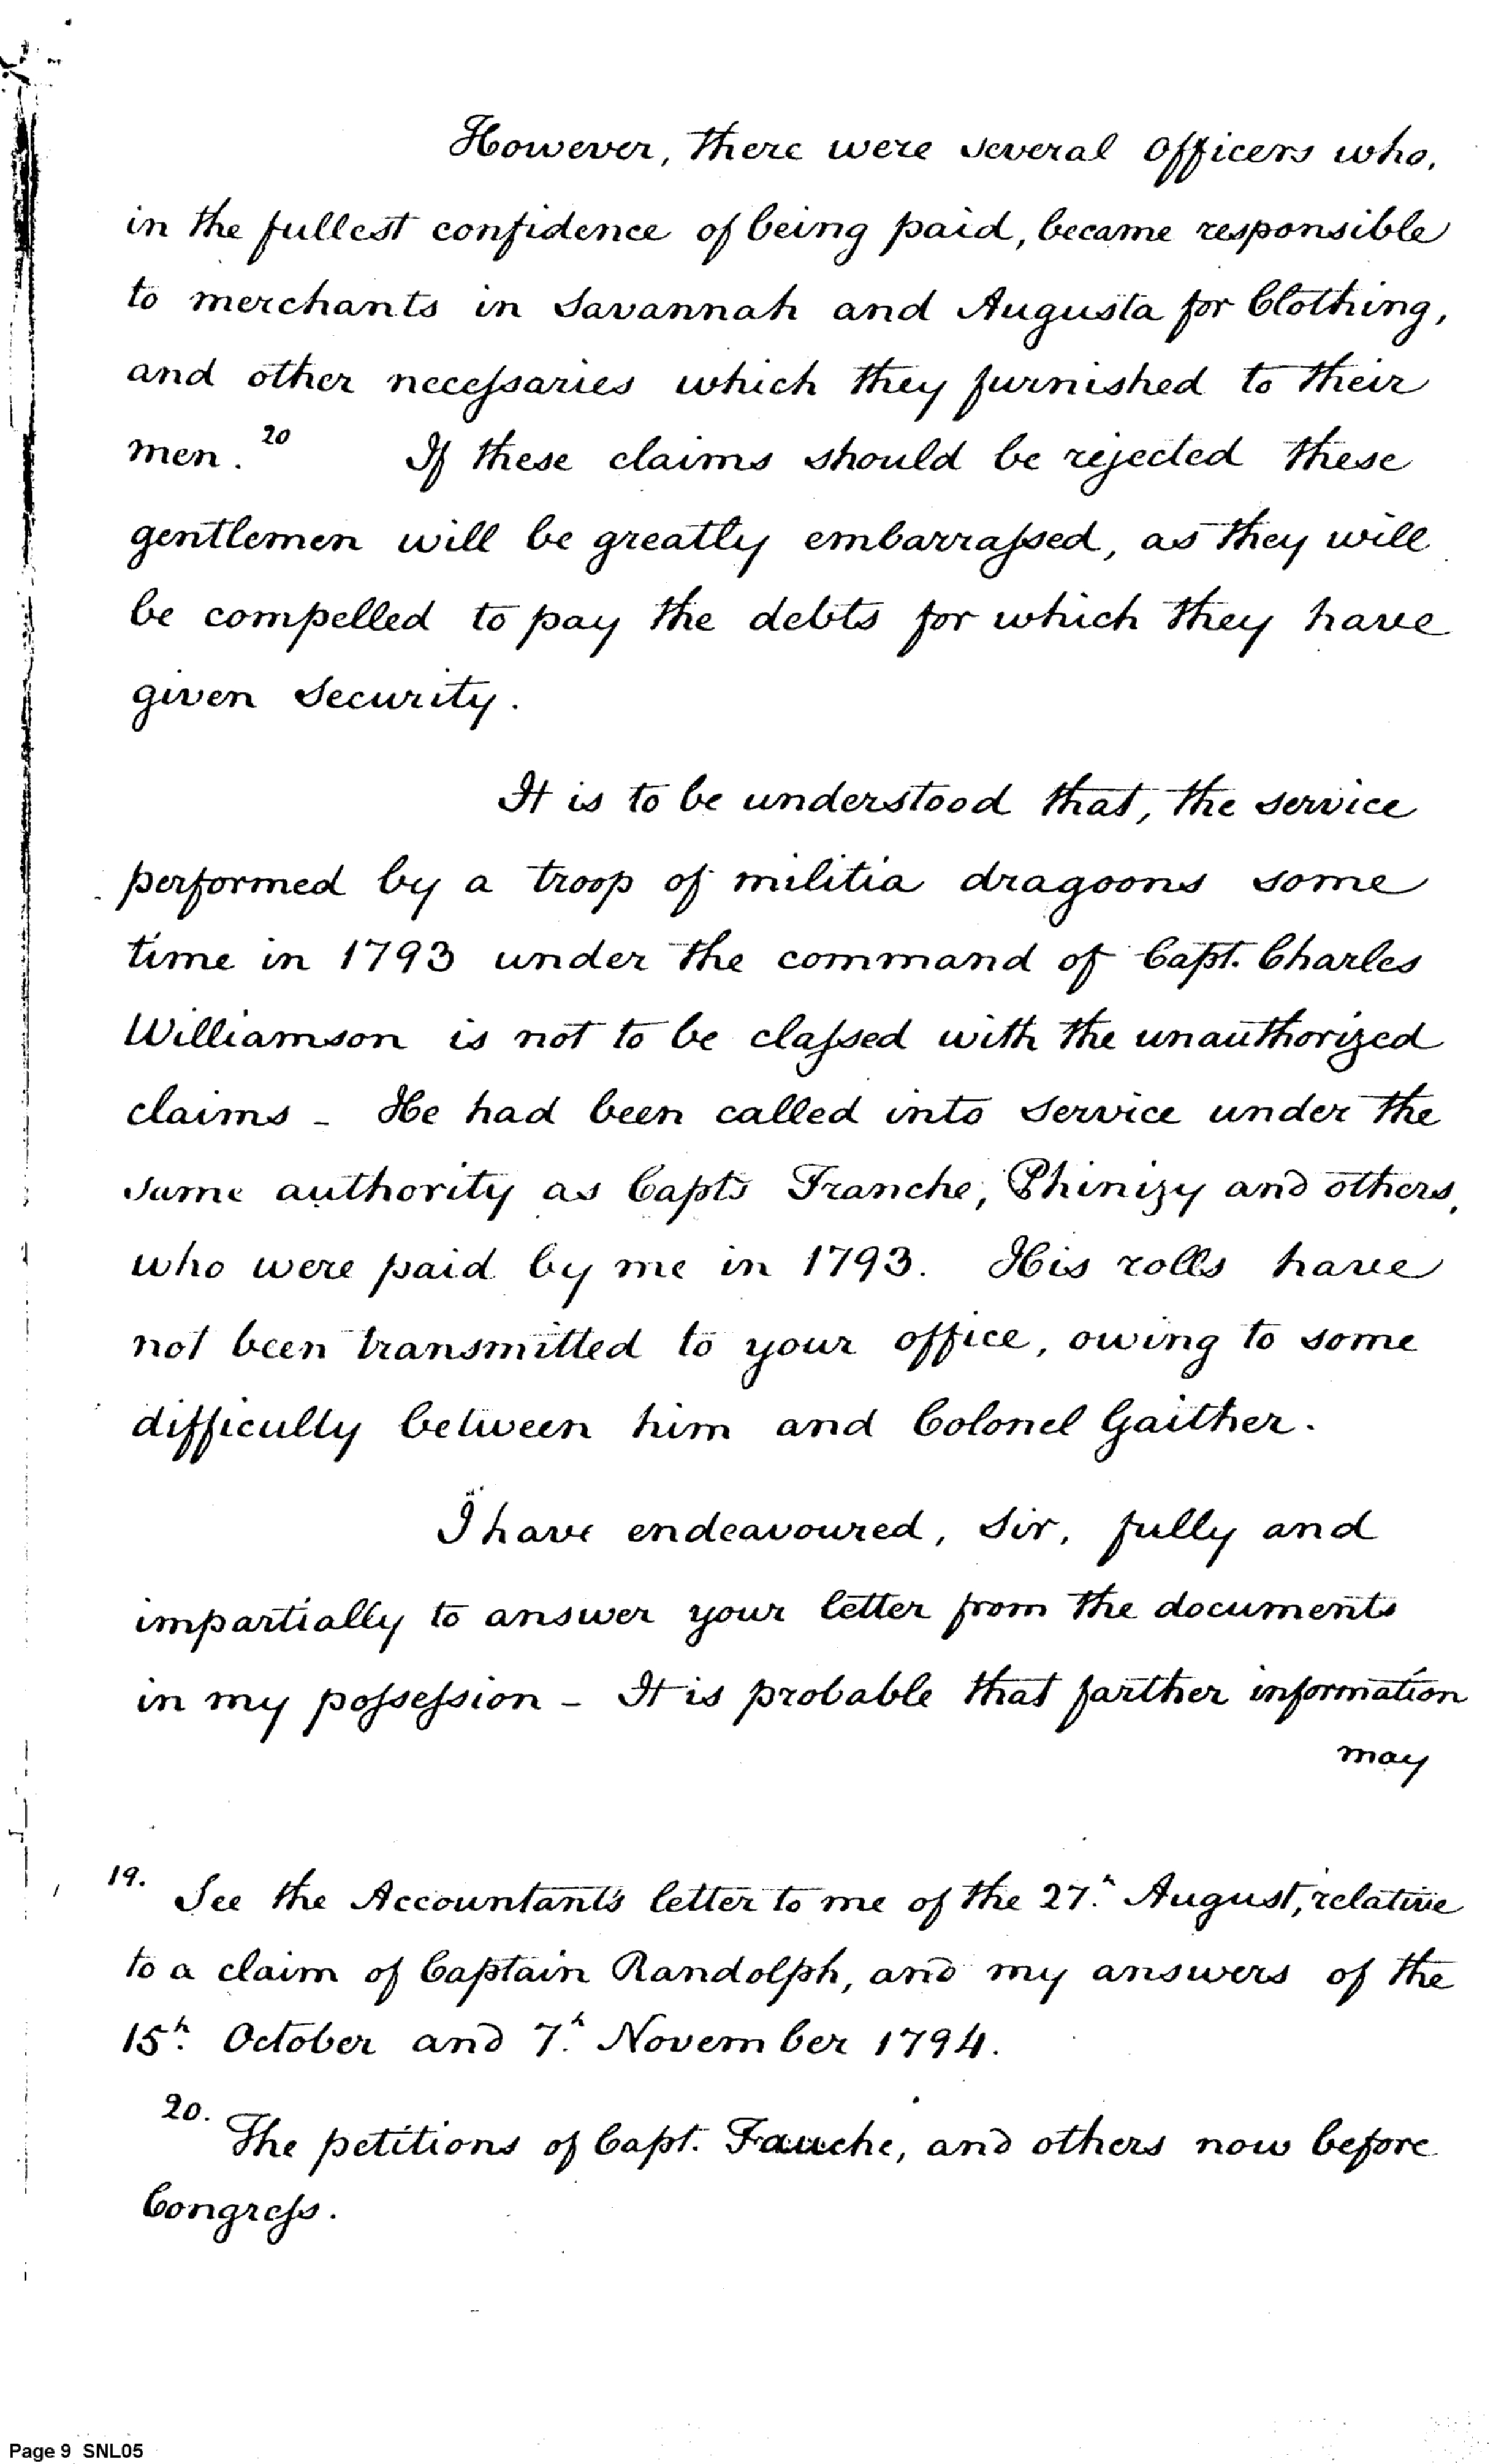 However, there were several Officers who,
in the fullest confidence of being paid, became responsible
to merchants in Savannah and Augusta for Clothing,
and other neceſsaries which they furnished to their
men. 20 If these claims should be rejected these
gentlemen will be greatly embarraſsed, as they will
be compelled to pay the debts for which they have
given Security.
It is to be understood that, the service
performed by a troop of militia dragoons some
time in 1793 under the command of Capt. Charles
Williamson is not to be claſsed with the unauthorized
claims - He had been called into Service under the
same authority as Capts Franche, Phinizy and others,
who were paid by me in 1793. His rolls have
not been transmitted to your office, owing to some
difficulty between him and Colonel Gaither.
I have endeavoured, Sir, fully and
impartially to answer your letter from the documents
in my poſseſsion - It is probable that farther information
may
19. See the Accountant's letter to me of the 27.h August, relative
to a claim of Captain Randolph, and my answers of the
15h. October and 7.h November 1794.
20. The petitions of Capt. Fauche, and others now before
Congreſs.
Page 9 SNL05